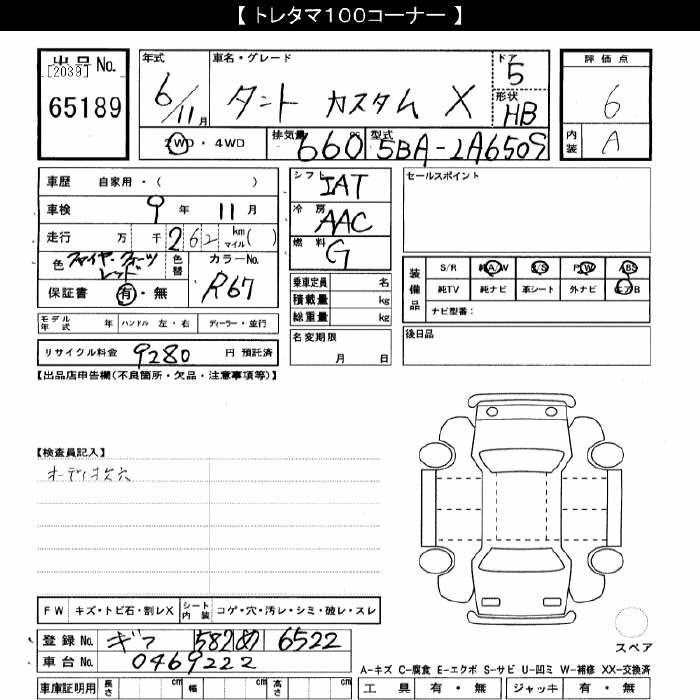 【 トレタマ１００コーナー 】
出品 No.
[2039]
65189
年式
6/11月
車名・グレード
タント カスタム X
ドア
5
形状
HB
2WD・4WD
排気量
660 cc
型式
5BA-LA650S
評価点
6
内装
A
車歴 自家用・( )
車検 9年 11月
走行 万 千 262 km マイル( )
色 ファイヤークォーツレッド
色替
カラーNo.
R67
保証書 有・無
シフト
IAT
冷房
AAC
燃料
G
セールスポイント
乗車定員 名
積載量 kg
総重量 kg
装備品
S/R 純A/W P/S P/W ABS
純TV 純ナビ 革シート 外ナビ エアB
ナビ型番：
モデル年式 年 ハンドル 左・右 ディーラー・並行
名変期限
月 日
後日品
リサイクル料金 9280 円 預託済
【出品店申告欄(不良箇所・欠品・注意事項等)】
【検査員記入】
オーディオ欠穴
FW キズ・トビ石・割レX シート内装 コゲ・穴・汚レ・シミ・破レ・スレ
登録 No. ギフ 582 め 6522
車台 No. 0469222
車庫証明用 長さ cm 幅 cm 高さ cm
スペア
A-キズ C-腐食 E-エクボ S-サビ U-凹ミ W-補修 XX-交換済
工具 有・無 ジャッキ 有・無